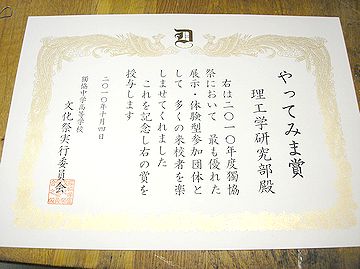 やってみま賞
理工学研究部殿
右は二〇一〇年度獨協
祭において 最も優れた
展示・体験型参加団体と
して 多くの来校者を楽
しませてくれました
これを記念し右の賞を
授与します
二〇一〇年十月四日
獨協中学高等学校
文化祭実行委員会